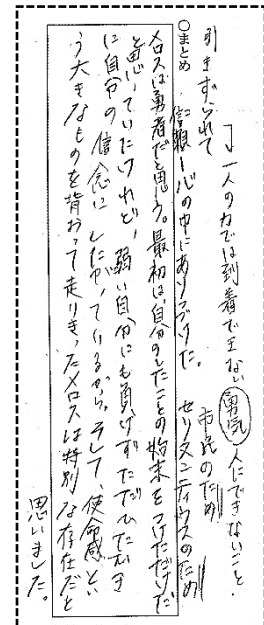 引きずられて
一人の力では到着できない 勇気 人にできないこと・
市民のため
セリヌンティウスのため
○まとめ 信頼ー心の中にありつづけた。
メロスは勇者だと思う。最初は、自分のしたことの始末をつけただけだ
と思っていたけれど、弱い自分にも負けずただひたむき
に自分の信念にしたがっているから。そして、使命感とい
う大きなものを背おって走りきったメロスは特別な存在だと
思いました。